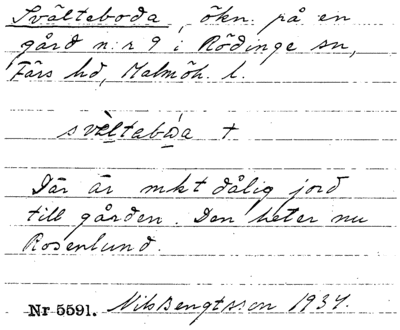 Svälteboda, ökn. på en
gård n:r 9 i Rödinge sn,
Färs hd, Malmöh. l.
svèltebo̱a +
Där är mkt dålig jord
till gården. Den heter nu
Rosenlund.
Nr 5591. Nils Bengtsson 1934.